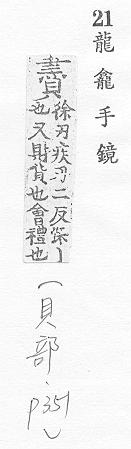 21
龍龕手鏡
賮徐刃疾刃二反琛丨
也又財貨也會禮也
（貝部、p351）